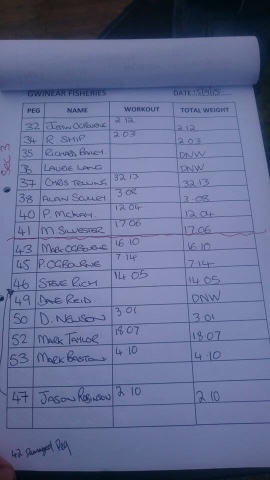 GWINEAR FISHERIES DATE:
PEG NAME WORKOUT TOTAL WEIGHT
32 JOHN OGBOURNE 2 12 2 12
34 R SHIP 2 03 2 03
35 RICHARD DNW
36 LANG DNW
37 CHRIS TELLING 32 13 32 13
38 ALAN 3 08 3 08
40 P. MCKAY 12 04 12 04
41 M SILVESTER 17 06 17 06
43 MARK OGBOURNE 16 10 16 10
45 P. OGBOURNE 7 14 7 14
46 STEVE RICH 14 05 14 05
49 DAVE REID DNW
50 D. 3 01 3 01
52 MARK TAYLOR 18 07 18 07
53 MARK 4 10 4 10
47 JASON ROBINSON 2 10 2 10
Sec 3
42 Damaged Peg